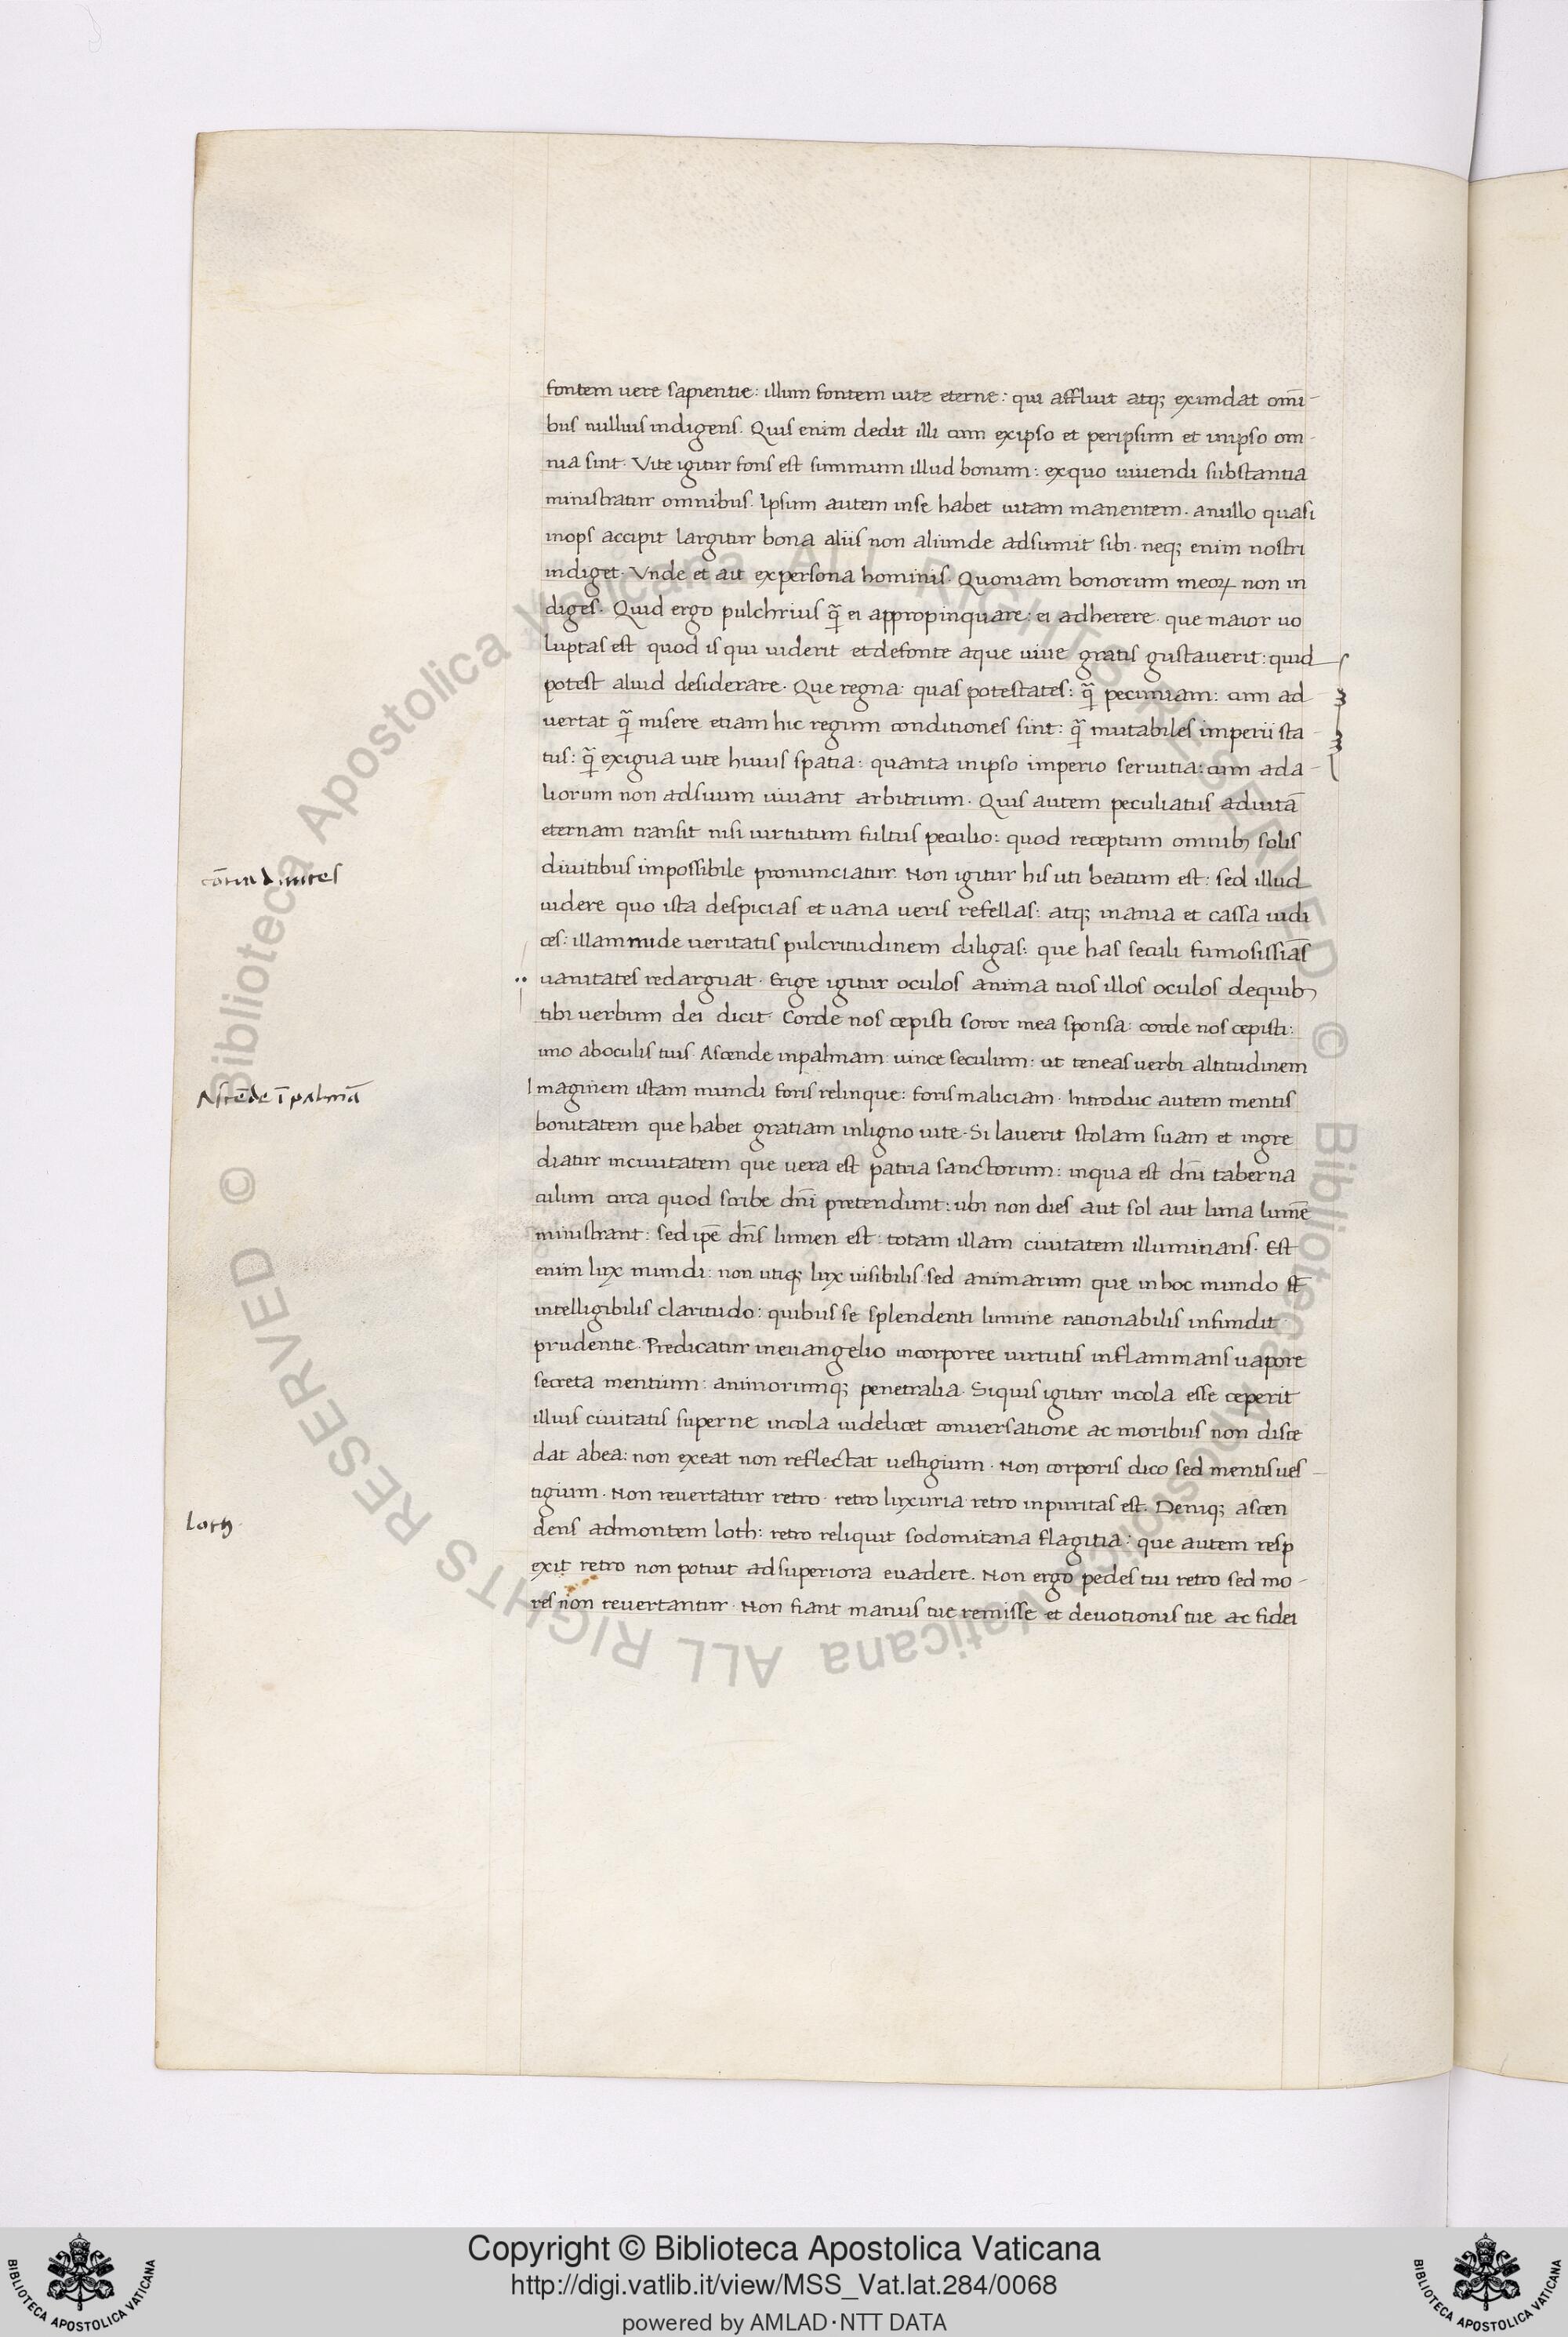 fontem uere sapientie: illum fontem uite eterne: qui affluit atq; exundat om̄i-
bus nullius indigens. Quis enim dedit illi cum exipso et peripsum et inipso om-
nia sint. Vite igitur fons est summum illud bonum: exquo uiuendi substantia
ministratur omnibus. Ipsum autem inse habet uitam manentem. anullo quasi
inops accipit largitur bona aliis non aliunde adsumit sibi. neq; enim nostri
indiget. Vnde et ait expersona hominis. Quoniam bonorum meoꝝ non in
diges. Quid ergo pulchrius q̄ ei appropinquare: ei adherere. que maior uo
luptas est quod is qui uiderit et defonte aque uiue gratis gustauerit: quid
potest aliud desiderare. Que regna: quas potestates: q̄ pecuniam: cum ad-
uertat q̄ misere etiam hic regum conditiones sint: q̄ mutabiles imperii sta-
tus: q̄ exigua uite huius spatia: quanta inipso imperio seruitia: cum ada-
liorum non adsuum uiuant arbitrium. Quis autem peculiatus aduitā
eternam transit nisi uirtutum fultus peculio: quod receptum omnibꝫ solis
cōtra diuites
diuitibus impossibile pronunciatur. Non igitur his uti beatum est: sed illud
uidere quo ista despicias et uana ueris refellas: atq; inania et cassa iudi
ces: illam nude ueritatis pulcritudinem diligas: que has seculi fumosissiās
uanitates redarguat. Erige igitur oculos anima tuos illos oculos dequibꝫ
tibi uerbum dei dicit. Corde nos cepisti soror mea sponsa: corde nos cepisti:
uno aboculis tuis. Ascende inpalmam: uince seculum: ut teneas uerbi altitudinem
Ascēde ī palmā
Imaginem istam mundi foris relinque: foris maliciam. Introduc autem mentis
bonitatem que habet gratiam inligno uite. Si lauerit stolam suam et ingre
diatur inciuitatem que uera est patria sanctorum: inqua est dn̄i taberna
culum circa quod scribe dn̄i pretendunt: ubi non dies aut sol aut luna lumē
ministrant: sed ipē dn̄s lumen est: totam illam ciuitatem illuminans. Est
enim lux mundi: non utiq; lux uisibilis: sed animarum que inhoc mundo st̄
intelligibilis claritudo: quibus se splendenti lumine rationabilis infundit
prudentie. Predicatur ineuangelio incorporee uirtutis inflammans uapore
secreta mentium: animorumq; penetralia. Siquis igitur incola esse ceperit
illius ciuitatis superne incola uidelicet conuersatione ac moribus non disce
dat abea: non exeat non reflectat uestigium. Non corporis dico sed mentis ues-
tigium. Non reuertatur retro. retro luxuria retro inpuritas est. Deniq; ascen
loth.
dens admontem loth: retro reliquit sodomitana flagitia: que autem resp
exit retro non potuit adsuperiora euadere. Non ergo pedes tui retro sed mo-
res non reuertantur. Non fiant manus tue remisse et deuotionis tue ac fidei
Copyright © Biblioteca Apostolica Vaticana
http://digi.vatlib.it/view/MSS_Vat.lat.284/0068
powered by AMLAD·NTT DATA
BIBLIOTECA APOSTOLICA VATICANA
BIBLIOTECA APOSTOLICA VATICANA
© Biblioteca Apostolica Vaticana ALL RIGHTS RESERVED
© Biblioteca Apostolica Vaticana ALL RIGHTS RESERVED